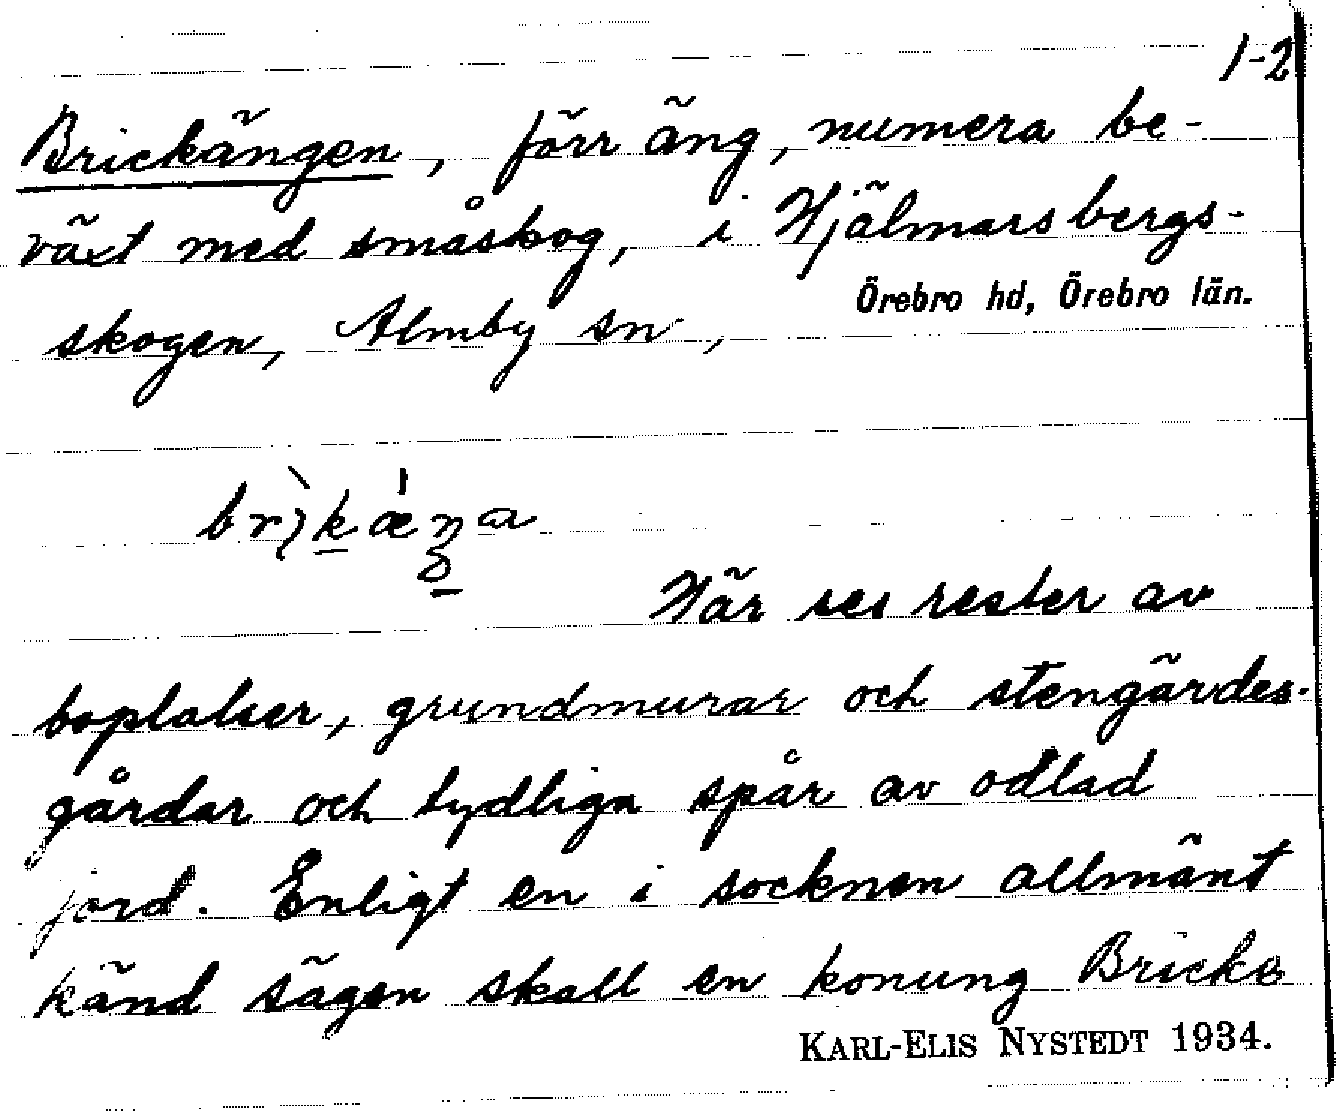 1-2
Brickängen, förr äng, numera be-
växt med småskog, i Hjälmarsbergs-
skogen, Almby sn, Örebro hd, Örebro län.
Här ses rester av
boplatser, grundmurar och stengärdes-
gårdar och tydliga spår av odlad
jord. Enligt en i socknen allmänt
känd sägen skall en konung Bricke
KARL-ELIS NYSTEDT 1934.